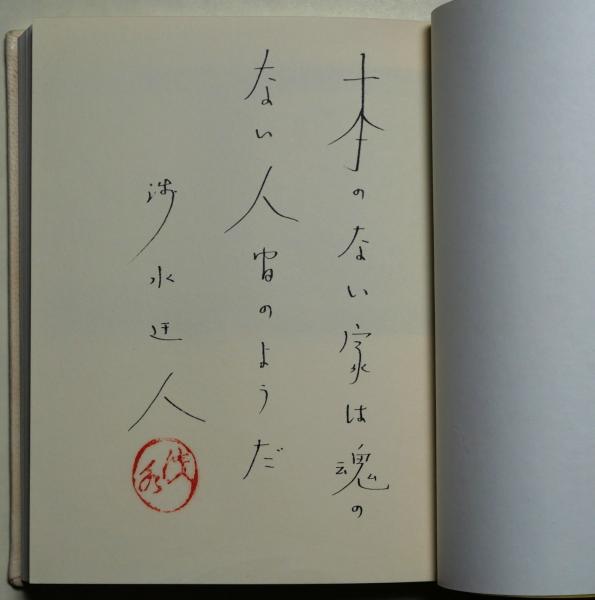 本のない家は魂の
ない人間のようだ
渉水迂人